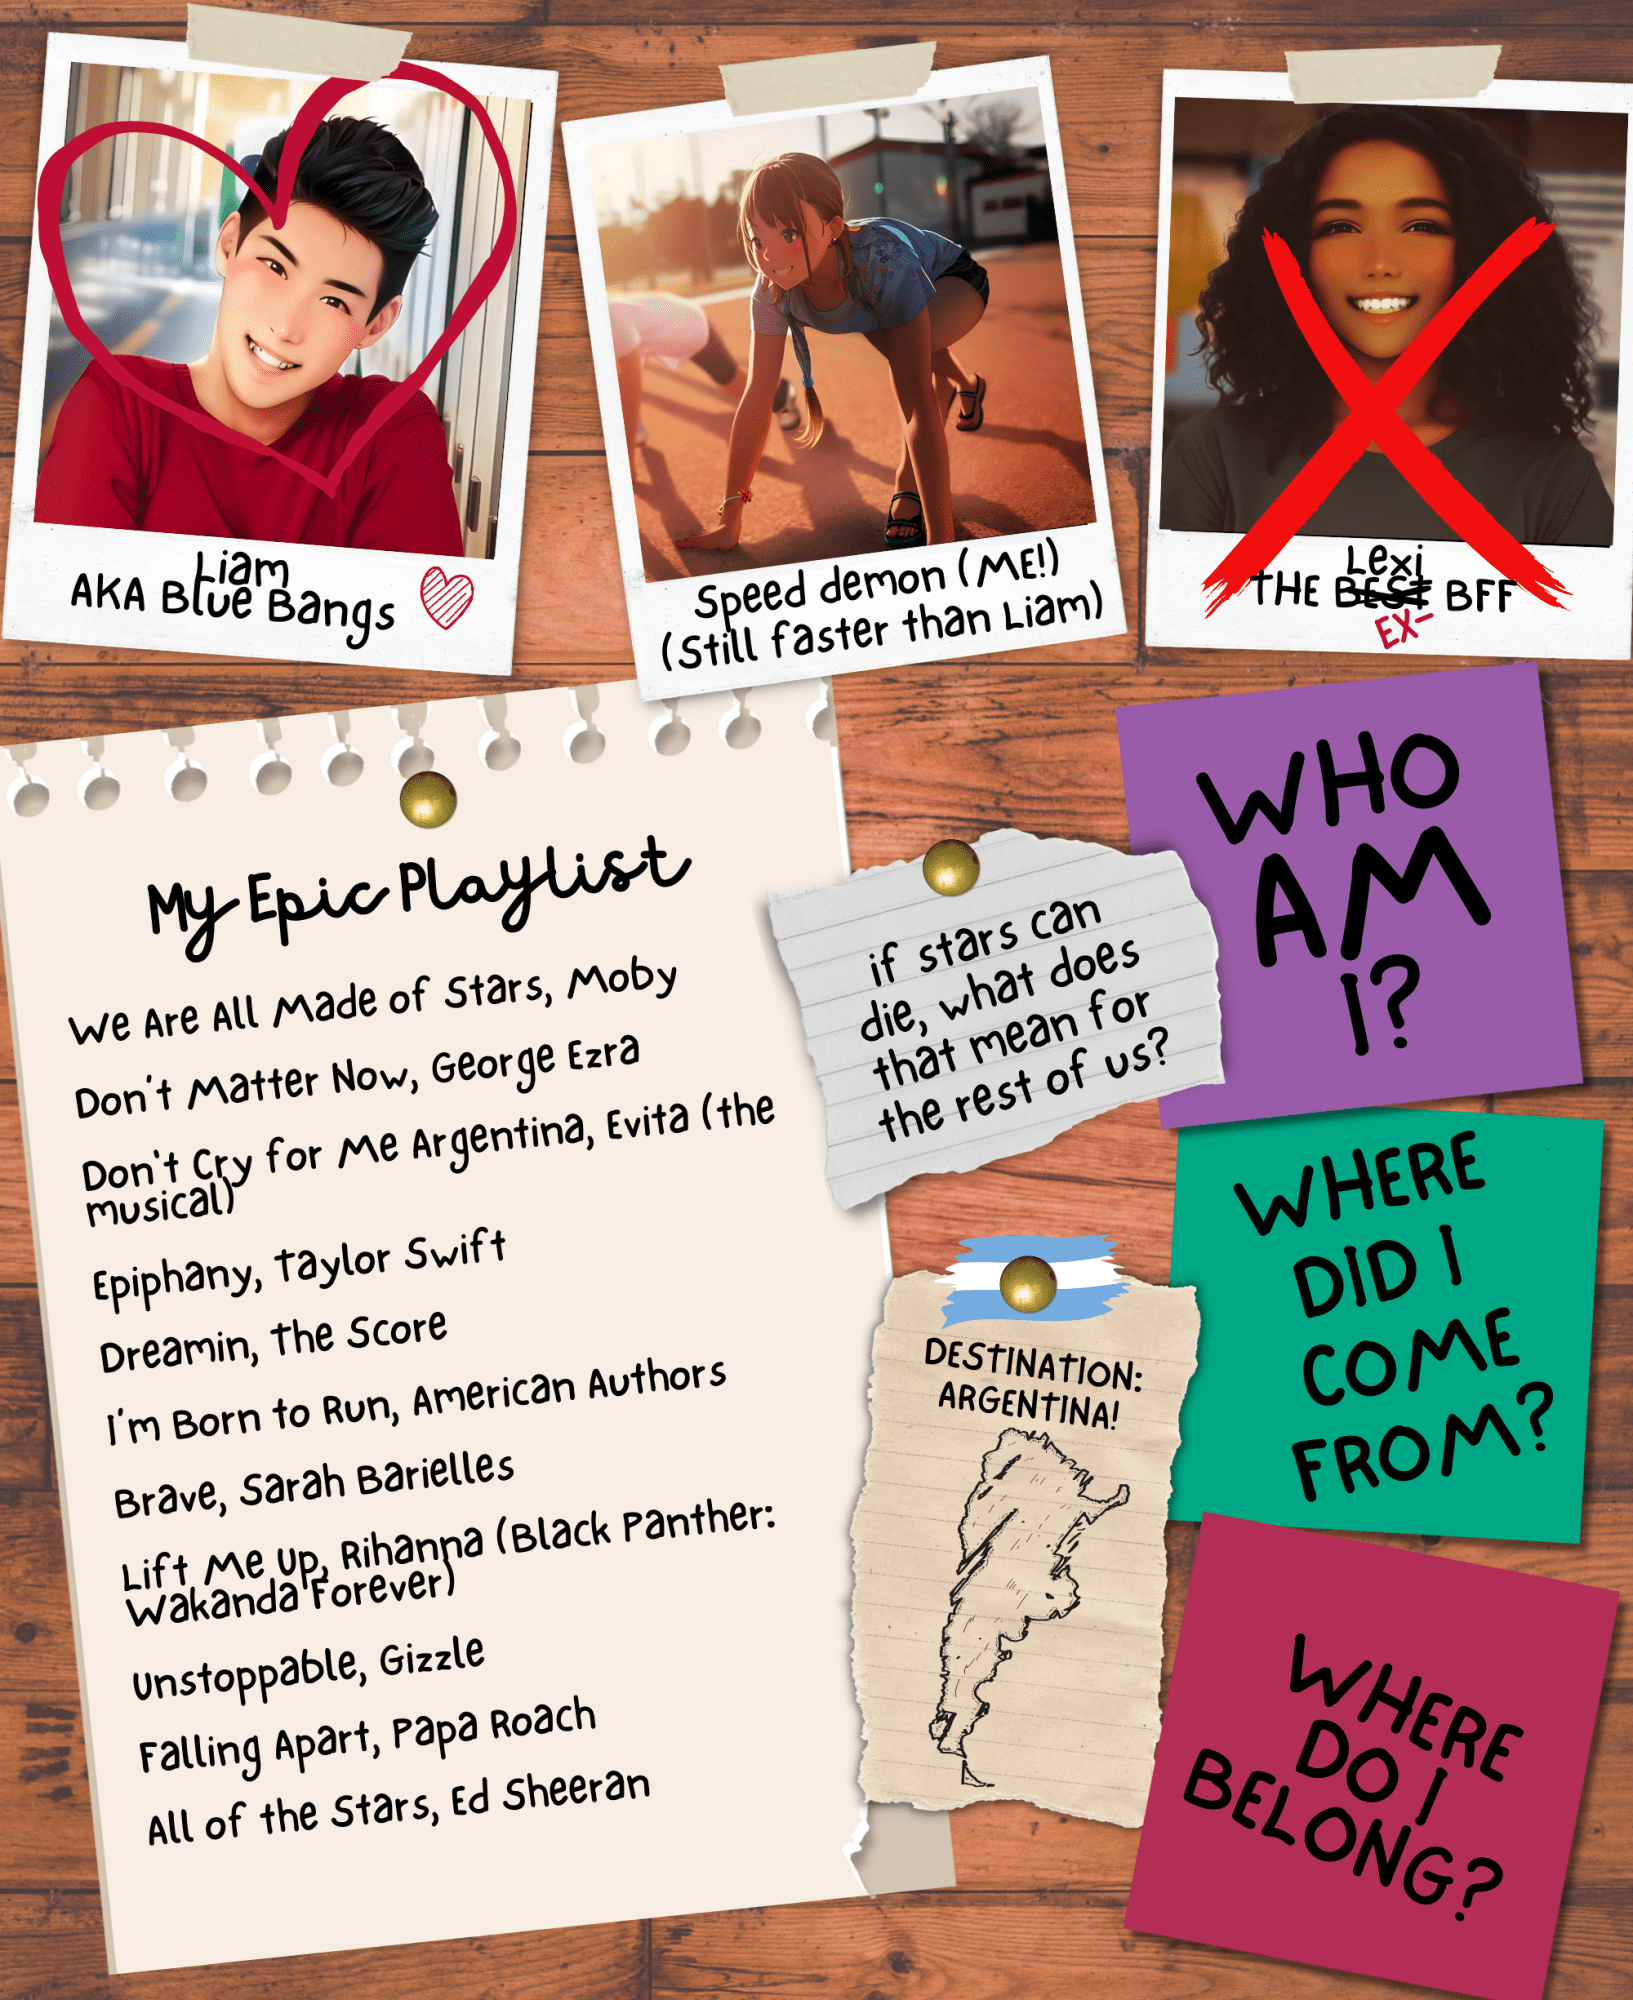 Liam
AKA Blue Bangs
Speed demon (ME!)
(Still faster than Liam)
Lexi
THE BEST BFF
EX-
My Epic Playlist
We Are All Made of Stars, Moby
Don't Matter Now, George Ezra
Don't Cry for Me Argentina, Evita (the
musical)
Epiphany, Taylor Swift
Dreamin, The Score
I'm Born to Run, American Authors
Brave, Sarah Barielles
Lift Me Up, Rihanna (Black Panther:
Wakanda Forever)
Unstoppable, Gizzle
Falling Apart, Papa Roach
All of the Stars, Ed Sheeran
if stars can
die, what does
that mean for
the rest of us?
DESTINATION:
ARGENTINA!
WHO
AM
I?
WHERE
DID I
COME
FROM?
WHERE
DO I
BELONG?